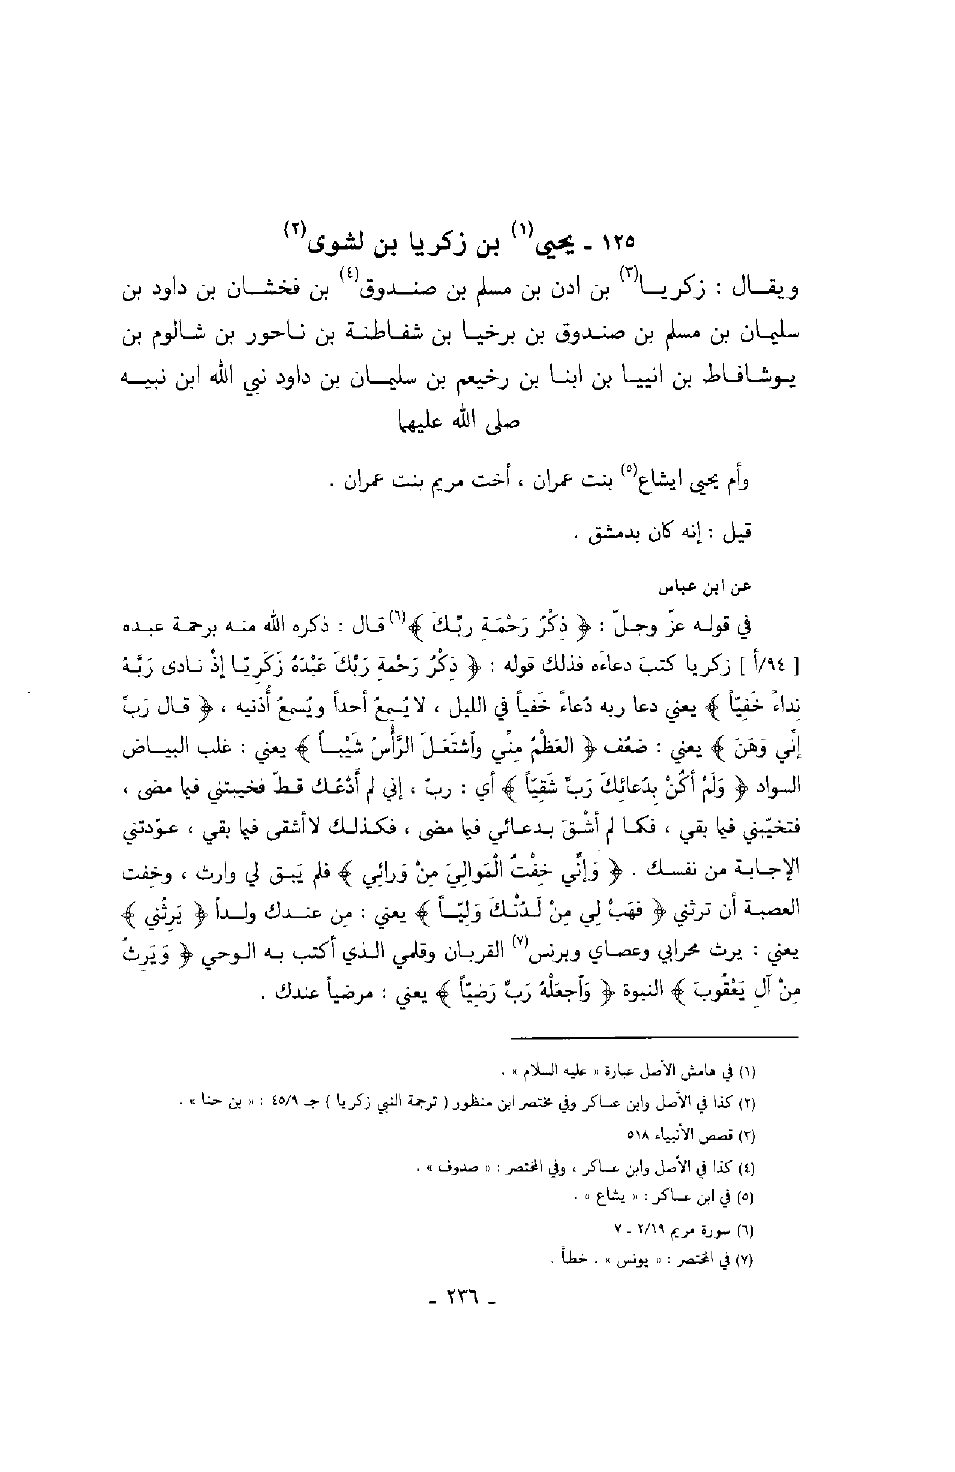 ١٢٥ ـ يحيى(١) بن زكريا بن لشوى(٢)
ويقال : زكريا(٣) بن ادن بن مسلم بن صندوق(٤) بن فخشان بن داود بن
سليمان بن مسلم بن صندوق بن برخيا بن شفاطنة بن ناحور بن شالوم بن
يوشافاط بن انييا بن ابنا بن رخيعم بن سليمان بن داود نبي الله ابن نبيه
صلى الله عليهما
وأم يحيى ايشاع(٥) بنت عمران ، أخت مريم بنت عمران .
قيل : إنه كان بدمشق .
عن ابن عباس
في قوله عزّ وجلّ : ﴿ ذِكْرُ رَحْمَةِ ربِّكَ ﴾(٦) قال : ذكره الله منه برحمة عبده
[ ٩٤/أ ] زكريا كتب دعاءَه فذلك قوله : ﴿ ذِكْرُ رَحْمةِ رَبِّكَ عَبْدَهُ زَكَرِيّا إذْ نادى رَبَّهُ
نِداءً خَفِيّاً ﴾ يعني دعا ربه دُعاءً خَفياً في الليل ، لا يُسمِعُ أحداً ويُسمِعُ أُذنيه ، ﴿ قال رَبِّ
إنِّي وَهَنَ ﴾ يعني : ضعُف ﴿ العَظْمُ مِنِّي وأشتَعَلَ الرَّأْسُ شَيْباً ﴾ يعني : غلب البياض
السواد ﴿ وَلَمْ أكُنْ بِدُعائِكَ رَبِّ شَقِيّاً ﴾ أي : ربّ ، إني لم أدْعُك قطّ فخيبتني فيما مضى ،
فتخيّبني فيما بقي ، فكما لم أشْقَ بدعائي فيما مضى ، فكذلك لا أشقى فيما بقي ، عوّدتني
الإجابة من نفسك . ﴿ وَإنِّي خِفْتُ الْمَوالِيَ مِنْ وَرائِي ﴾ فلم يَبق لي وارث ، وخِفت
العصبة أن ترثني ﴿ فَهَبْ لِي مِنْ لَدُنْكَ وَلِيّاً ﴾ يعني : مِن عندك ولداً ﴿ يَرِثُنِي ﴾
يعني : يرث محرابي وعصاي وبرنس(٧) القربان وقلمي الذي أكتب به الوحي ﴿ وَيَرِثُ
مِنْ آلِ يَعْقُوبَ ﴾ النبوة ﴿ وَأجعَلْهُ رَبِّ رَضِيّاً ﴾ يعني : مرضياً عندك .
(١) في هامش الأصل عبارة « عليه السلام » .
(٢) كذا في الأصل وابن عساكر وفي مختصر ابن منظور ( ترجمة النبي زكريا ) جـ ٤٥/٩ : « بن حنا » .
(٣) قصص الأنبياء ٥١٨
(٤) كذا في الأصل وابن عساكر ، وفي المختصر : « صدوف » .
(٥) في ابن عساكر : « يشاع » .
(٦) سورة مريم ٢/١٩ ـ ٧
(٧) في المختصر : « يونس » . خطأ .
ـ ٢٣٦ ـ